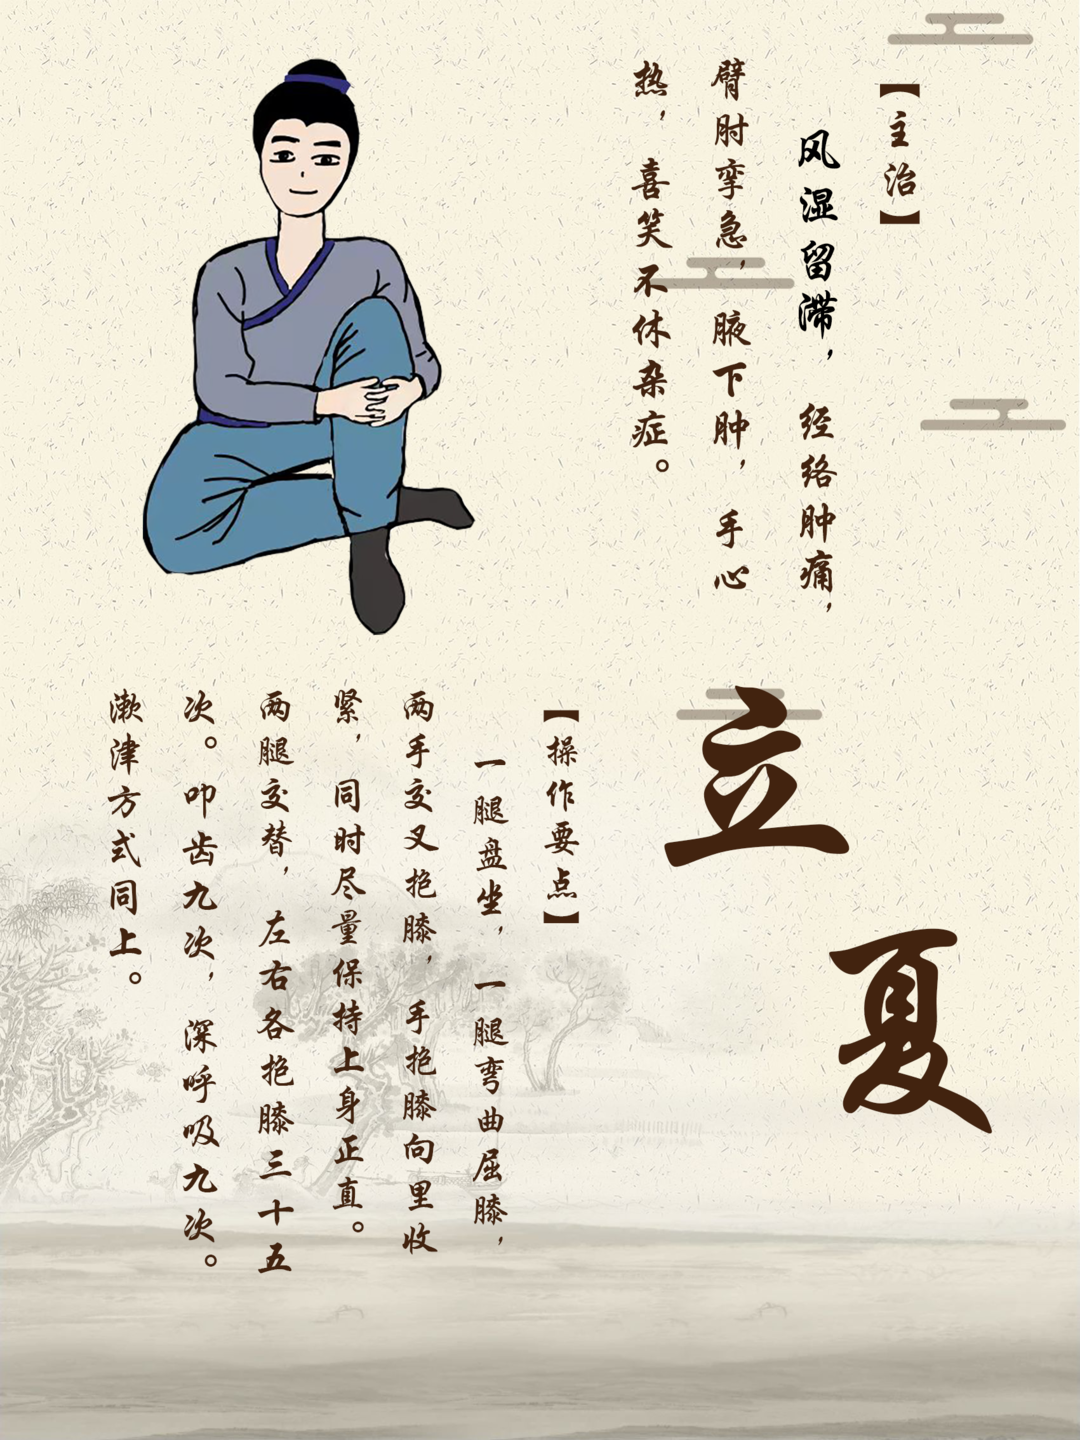 【主治】
风湿留滞，经络肿痛，
臂肘挛急，腋下肿，手心
热，喜笑不休杂症。
立夏
【操作要点】
一腿盘坐，一腿弯曲屈膝，
两手交叉抱膝，手抱膝向里收
紧，同时尽量保持上身正直。
两腿交替，左右各抱膝三十五
次。叩齿九次，深呼吸九次。
漱津方式同上。